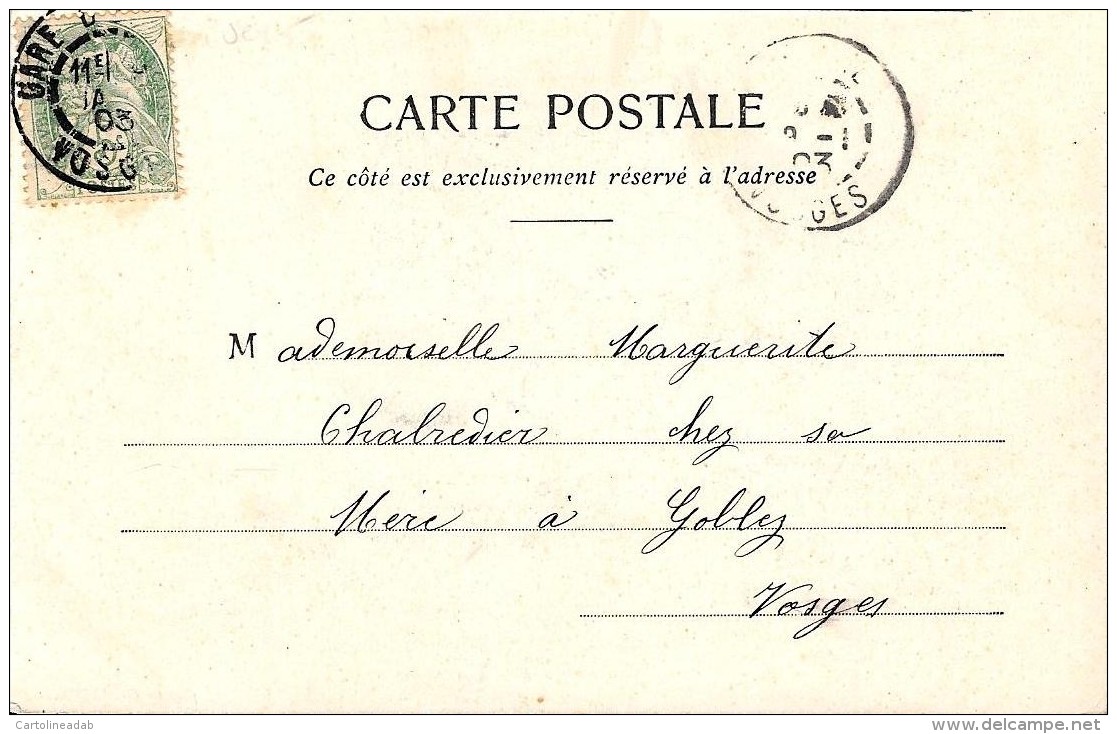 GARE
11E
03
VOSGES
CARTE POSTALE
Ce côté est exclusivement réservé à l'adresse
Mademoiselle Marguerite
Chalredier chez sa
Mère à Golbey
Vosges
Cartolineadab
www.delcampe.net